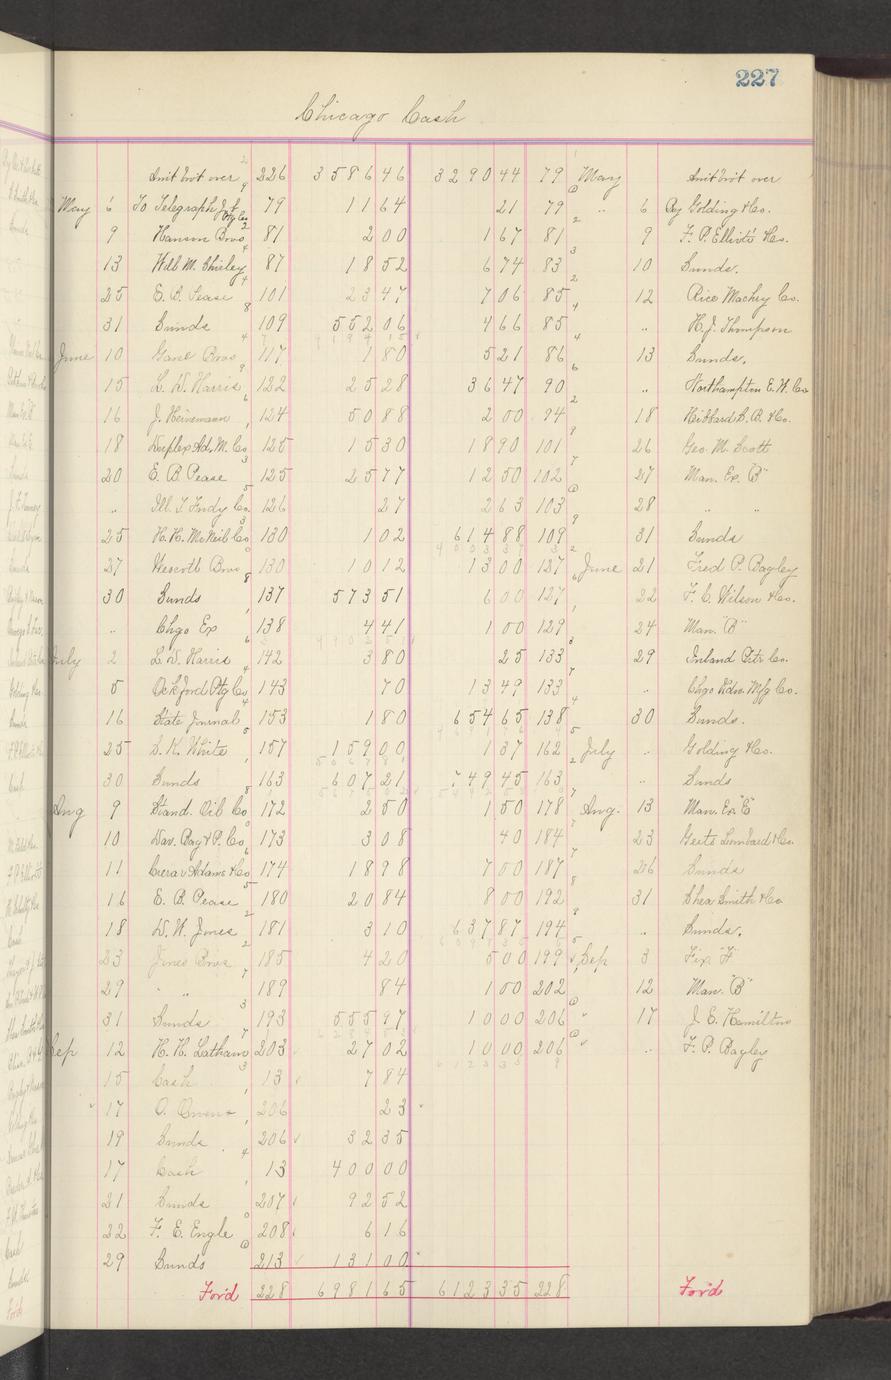 227
Chicago Cash
Amt brot over 226 3586 46 3290 44 79 May Amt brot over
May 6 To Telegraph J & Ptg Co 79 11 64 21 79 " 6 By Golding & Co.
9 Hanson Bros 81 2 00 1 67 81 9 F. P. Elliott & Co.
13 Will M. Shirley 87 18 52 6 74 83 10 Sunds.
25 E. B. Pease 101 23 47 7 06 85 12 Rice Machry Co.
31 Sunds 109 552 06 4 66 85 " H. J. Thompson
June 10 Gane Bros 117 1 80 5 21 86 13 Sunds.
15 L. W. Harris 122 25 28 36 47 90 " Northampton E. W. Co
16 J. Heinemann 124 50 88 2 00 94 18 Hibbard S. B. & Co.
18 Duplex Ad. M. Co 125 15 30 18 90 101 26 Geo. M. Scott
20 E. B. Pease 125 25 77 12 50 102 27 Man. Ex. "B"
" Ill. T. Fndy Co. 126 27 2 63 103 28 " "
25 H. H. McNeil Co 130 1 02 614 88 109 31 Sunds
27 Wescott Bros 130 10 12 13 00 127 June 21 Fred P. Bagley
30 Sunds 137 573 51 6 00 127 22 F. C. Wilson & Co.
" Chgo Ex 138 4 41 1 00 129 24 Man. "B"
July 2 L. W. Harris 142 3 80 25 133 29 Inland Ptr Co.
5 Ockford Ptg Co 143 70 13 49 133 " Chgo Mfg Co.
16 State Journal 153 1 80 654 65 138 30 Sunds.
25 S. K. White 157 159 00 1 37 162 July " Golding & Co.
30 Sunds 163 607 21 749 45 163 " Sunds
Aug 9 Stand. Oil Co 172 2 50 1 50 178 Aug. 13 Man. Ex. "E"
10 Dav. Bag & P. Co 173 3 08 40 184 23 Geits Lombard & Co.
11 Crerar Adams & Co 174 18 98 7 00 187 26 Sunds
16 E. B. Pease 180 20 84 8 00 192 31 Shea Smith & Co
18 W. W. Jones 181 3 10 637 87 194 " Sunds.
23 Jones Bros 185 4 20 5 00 199 Sep 3 Fix "F"
29 " " 189 84 1 00 202 12 Man. "B"
31 Sunds 193 555 97 10 00 206 " 17 J. E. Hamilton
Sep 12 H. H. Latham 203 27 02 10 00 206 " " F. P. Bagley
15 Cash 13 7 84
17 O. Owens 206 23
19 Sunds 206 32 35
17 Cash 13 400 00
21 Sunds 207 92 52
22 F. E. Engle 208 6 16
29 Sunds 213 131 00
For'd 228 6981 65 6123 35 228 For'd